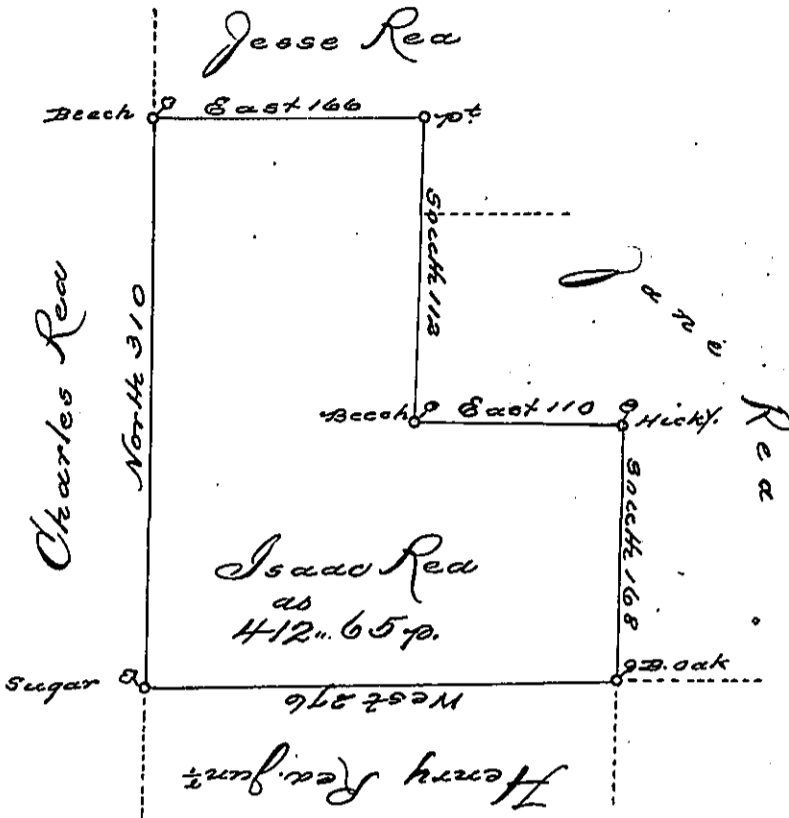 Jesse Rea
Beech
East 166
pt.
South 112
John Rea
Charles Rea
North 310
Beech
East 110
Hicky.
South 168
Isaac Rea
as
412.. 65 p.
Sugar
B. oak
West 276
Henry Rea. Junr